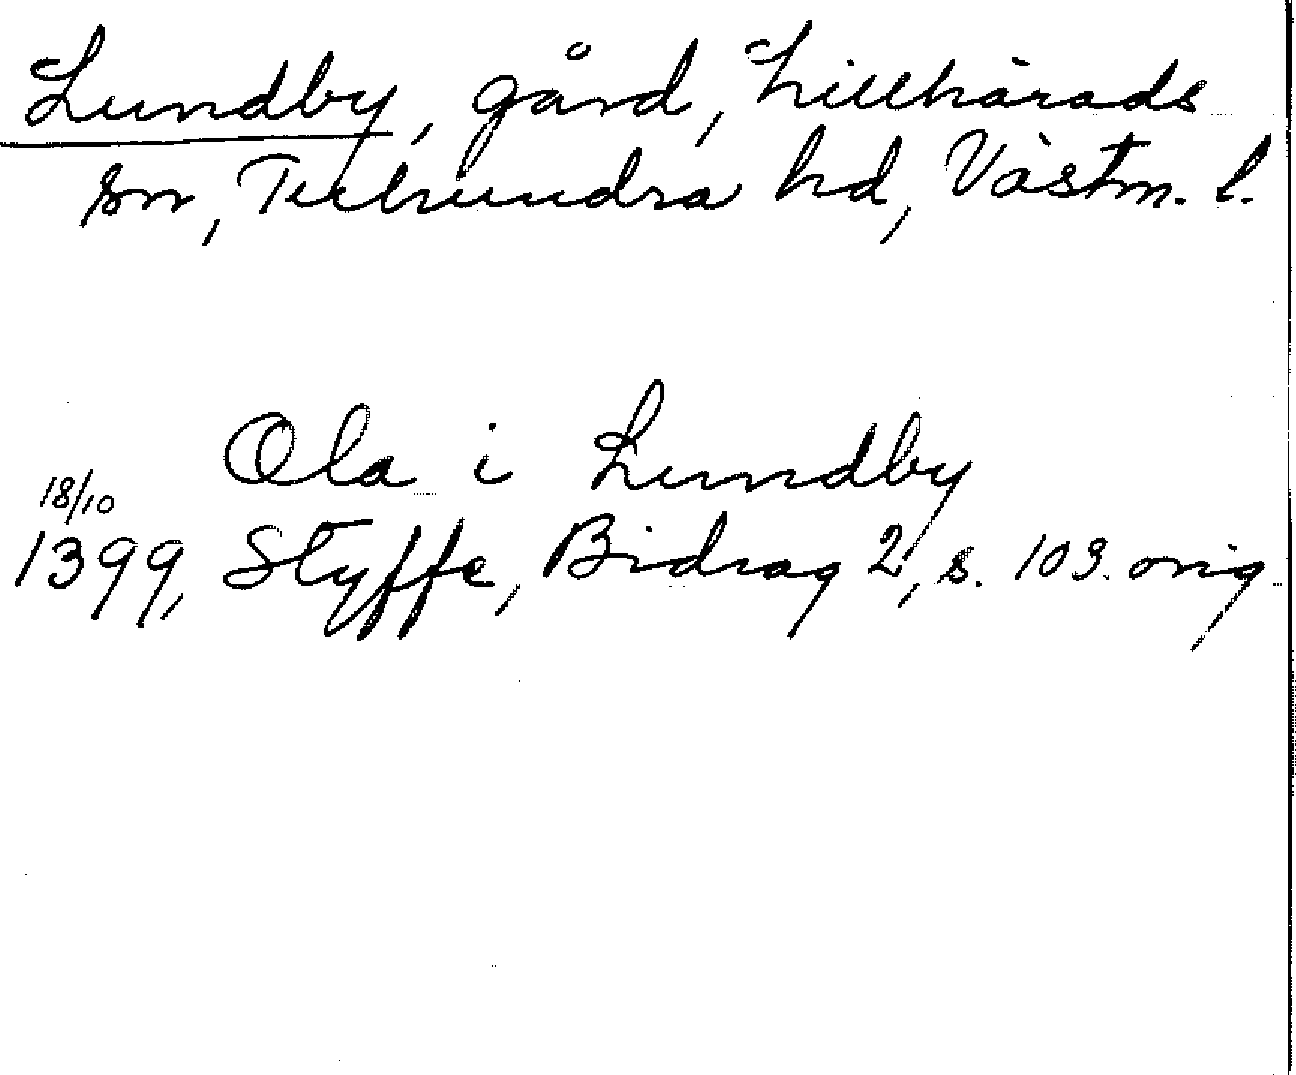 Lundby, gård, Lillhärads
sn, Tuhundra hd, Västm. l.
Ola i Lundby
18/10
1399, Styffe, Bidrag 2, s. 103. orig.